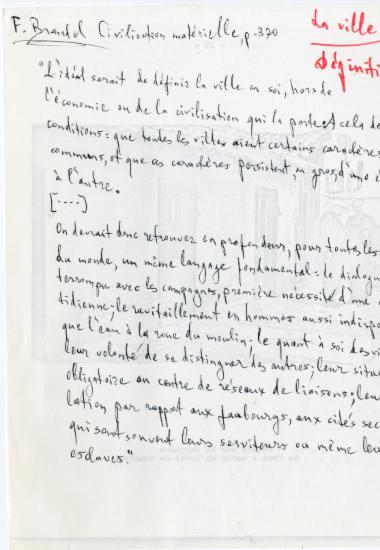 F. Braudel Civilisation matérielle, p. 370
La ville
Définiti
"L'idéal serait de définir la ville en soi, hors de
l'économie ou de la civilisation qui la porte et cela de
conditions : que toutes les villes aient certains caractères
communs, et que ces caractères persistent en gros, d'une é
à l'autre.
[----]
On devrait donc retrouver en profondeur, pour toutes les
du monde, un même langage fondamental : le dialogue
terrompu avec les campagnes, première nécessité d'une
tidienne ; le ravitaillement en hommes aussi indisp
que l'eau à la roue du moulin ; le quant à soi des vi
leur volonté de se distinguer des autres ; leur situa
obligatoire au centre de réseaux de liaisons ; leur
lation par rapport aux faubourgs, aux cités sec
qui sont souvent leurs serviteurs ou même leu
esclaves."